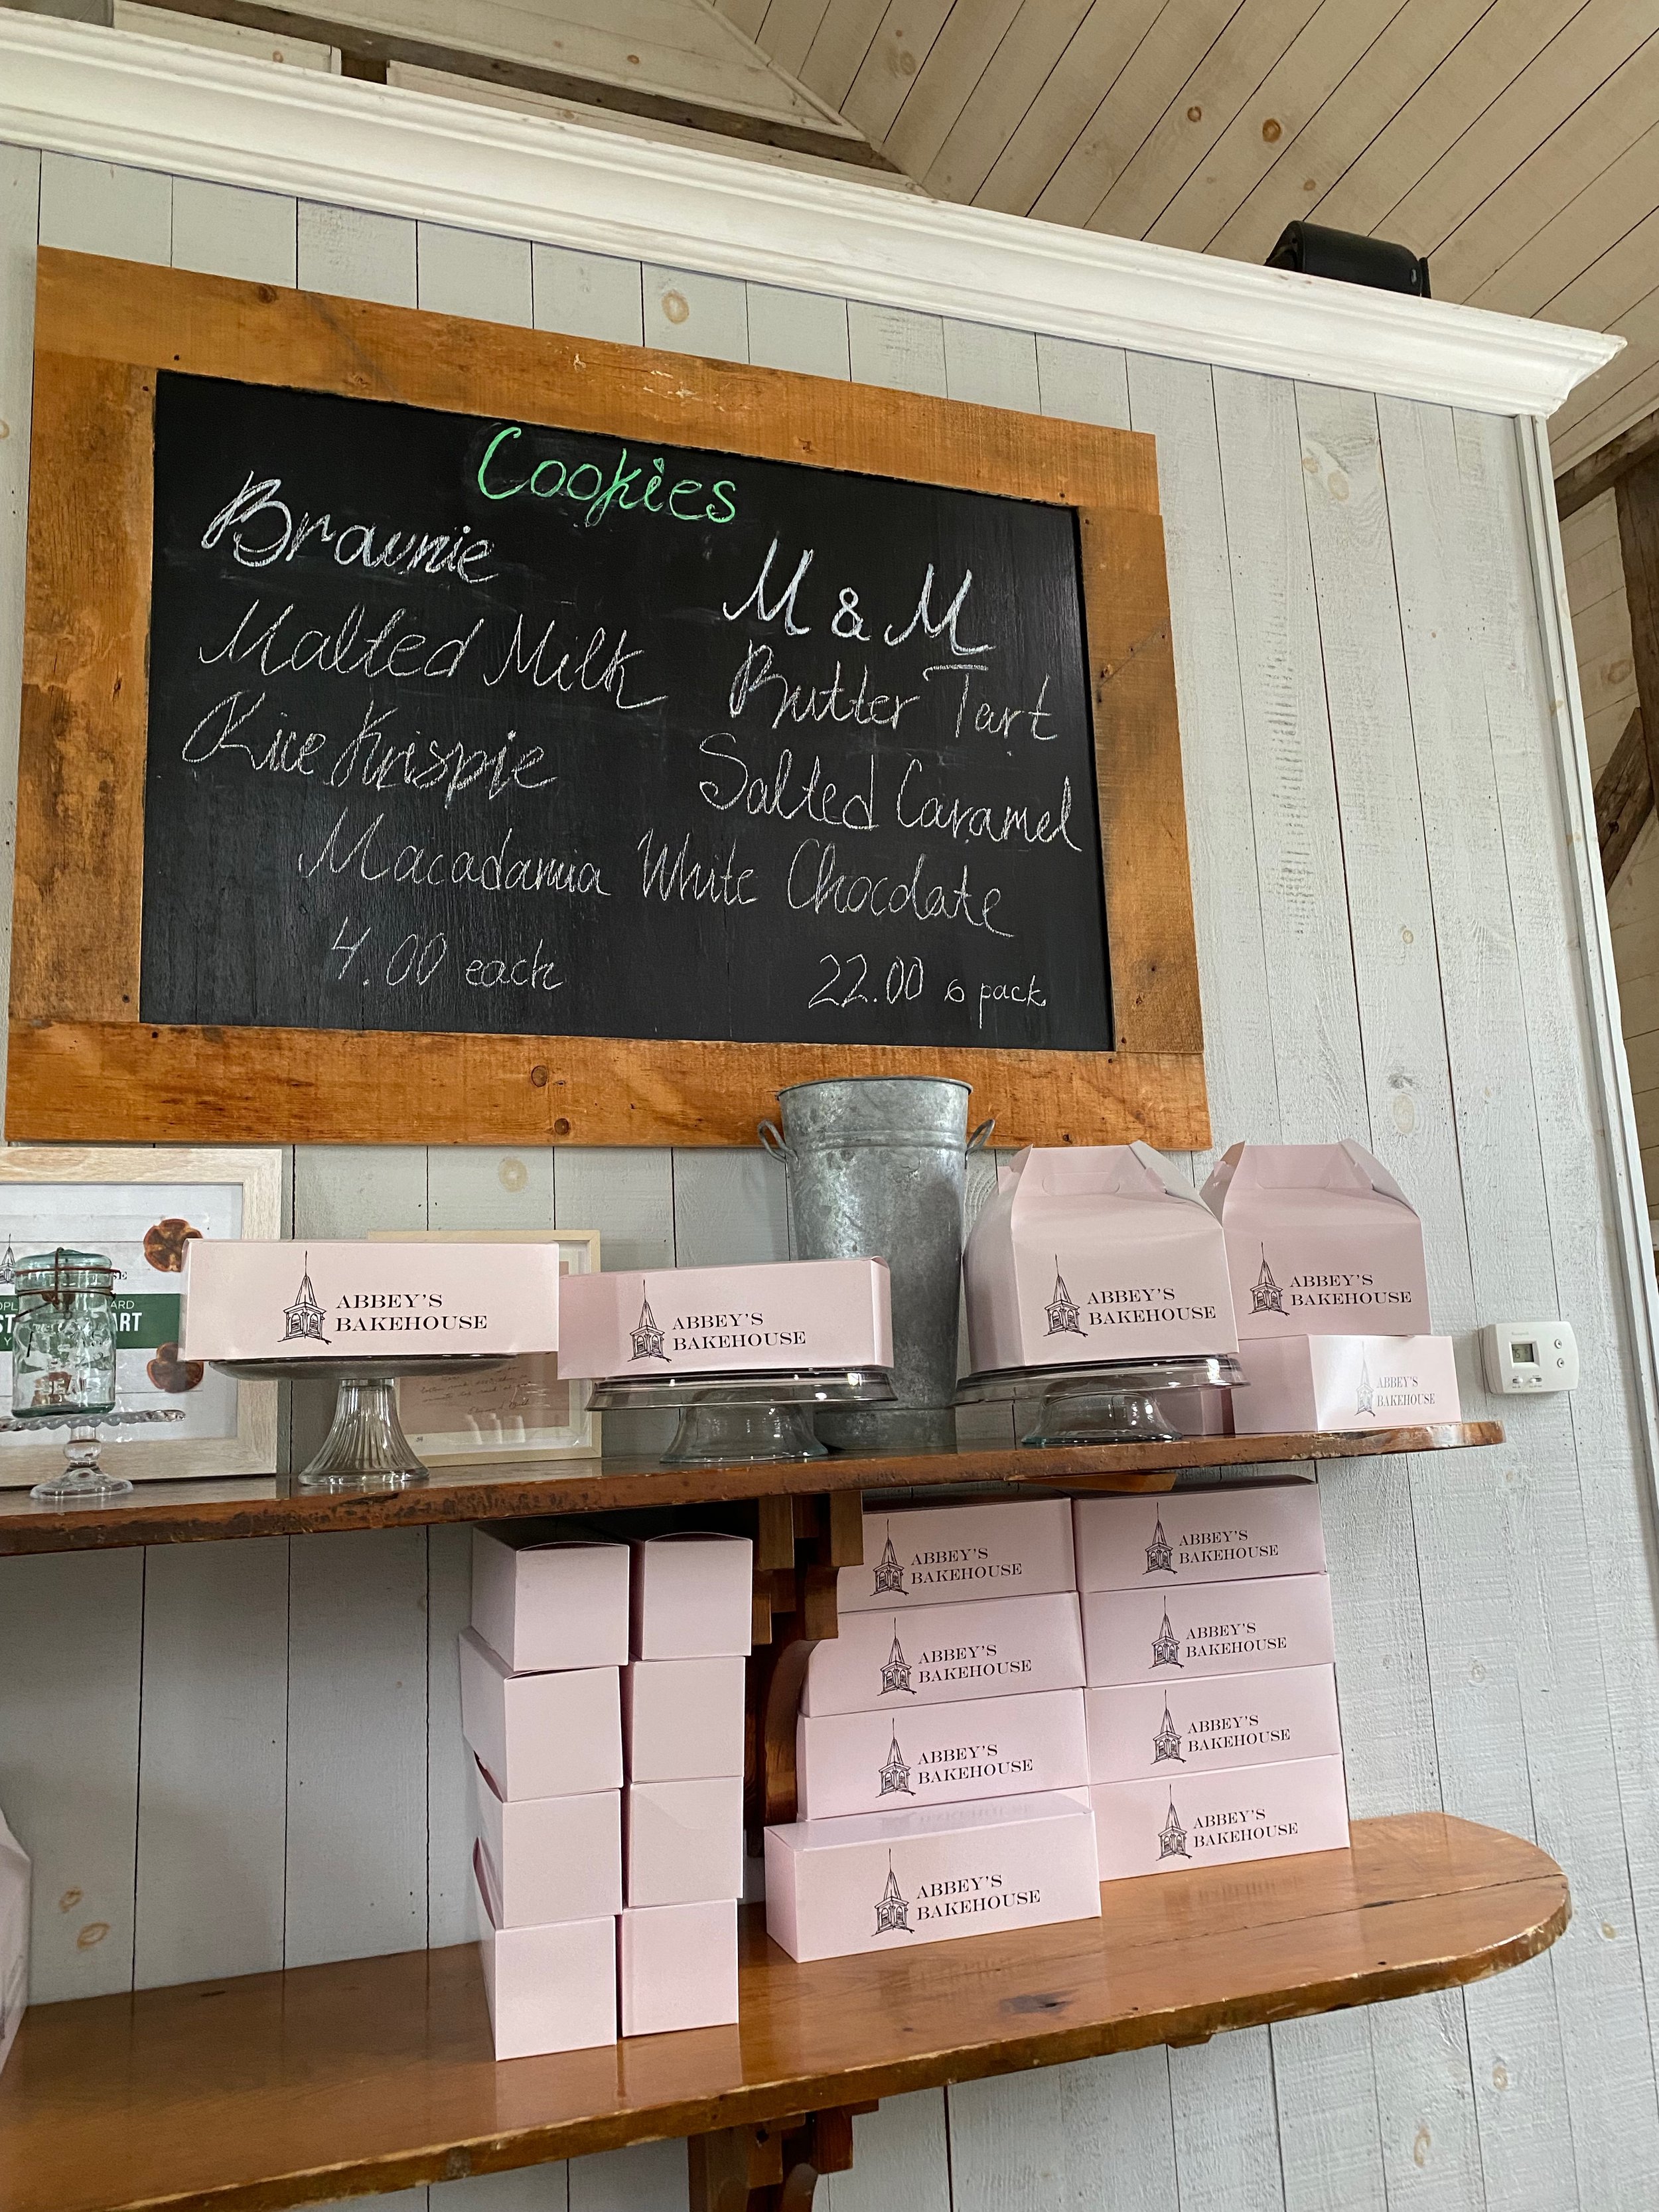 Cookies
Brownie
M & M
Malted Milk
Butter Tart
Rice Krispie
Salted Caramel
Macadamia White Chocolate
4.00 each
22.00 6 pack
ARD
ART
ABBEY'S
BAKEHOUSE
ABBEY'S
BAKEHOUSE
ABBEY'S
BAKEHOUSE
ABBEY'S
BAKEHOUSE
ABBEY'S
BAKEHOUSE
ABBEY'S
BAKEHOUSE
ABBEY'S
BAKEHOUSE
ABBEY'S
BAKEHOUSE
ABBEY'S
BAKEHOUSE
ABBEY'S
BAKEHOUSE
ABBEY'S
BAKEHOUSE
ABBEY'S
BAKEHOUSE
ABBEY'S
BAKEHOUSE